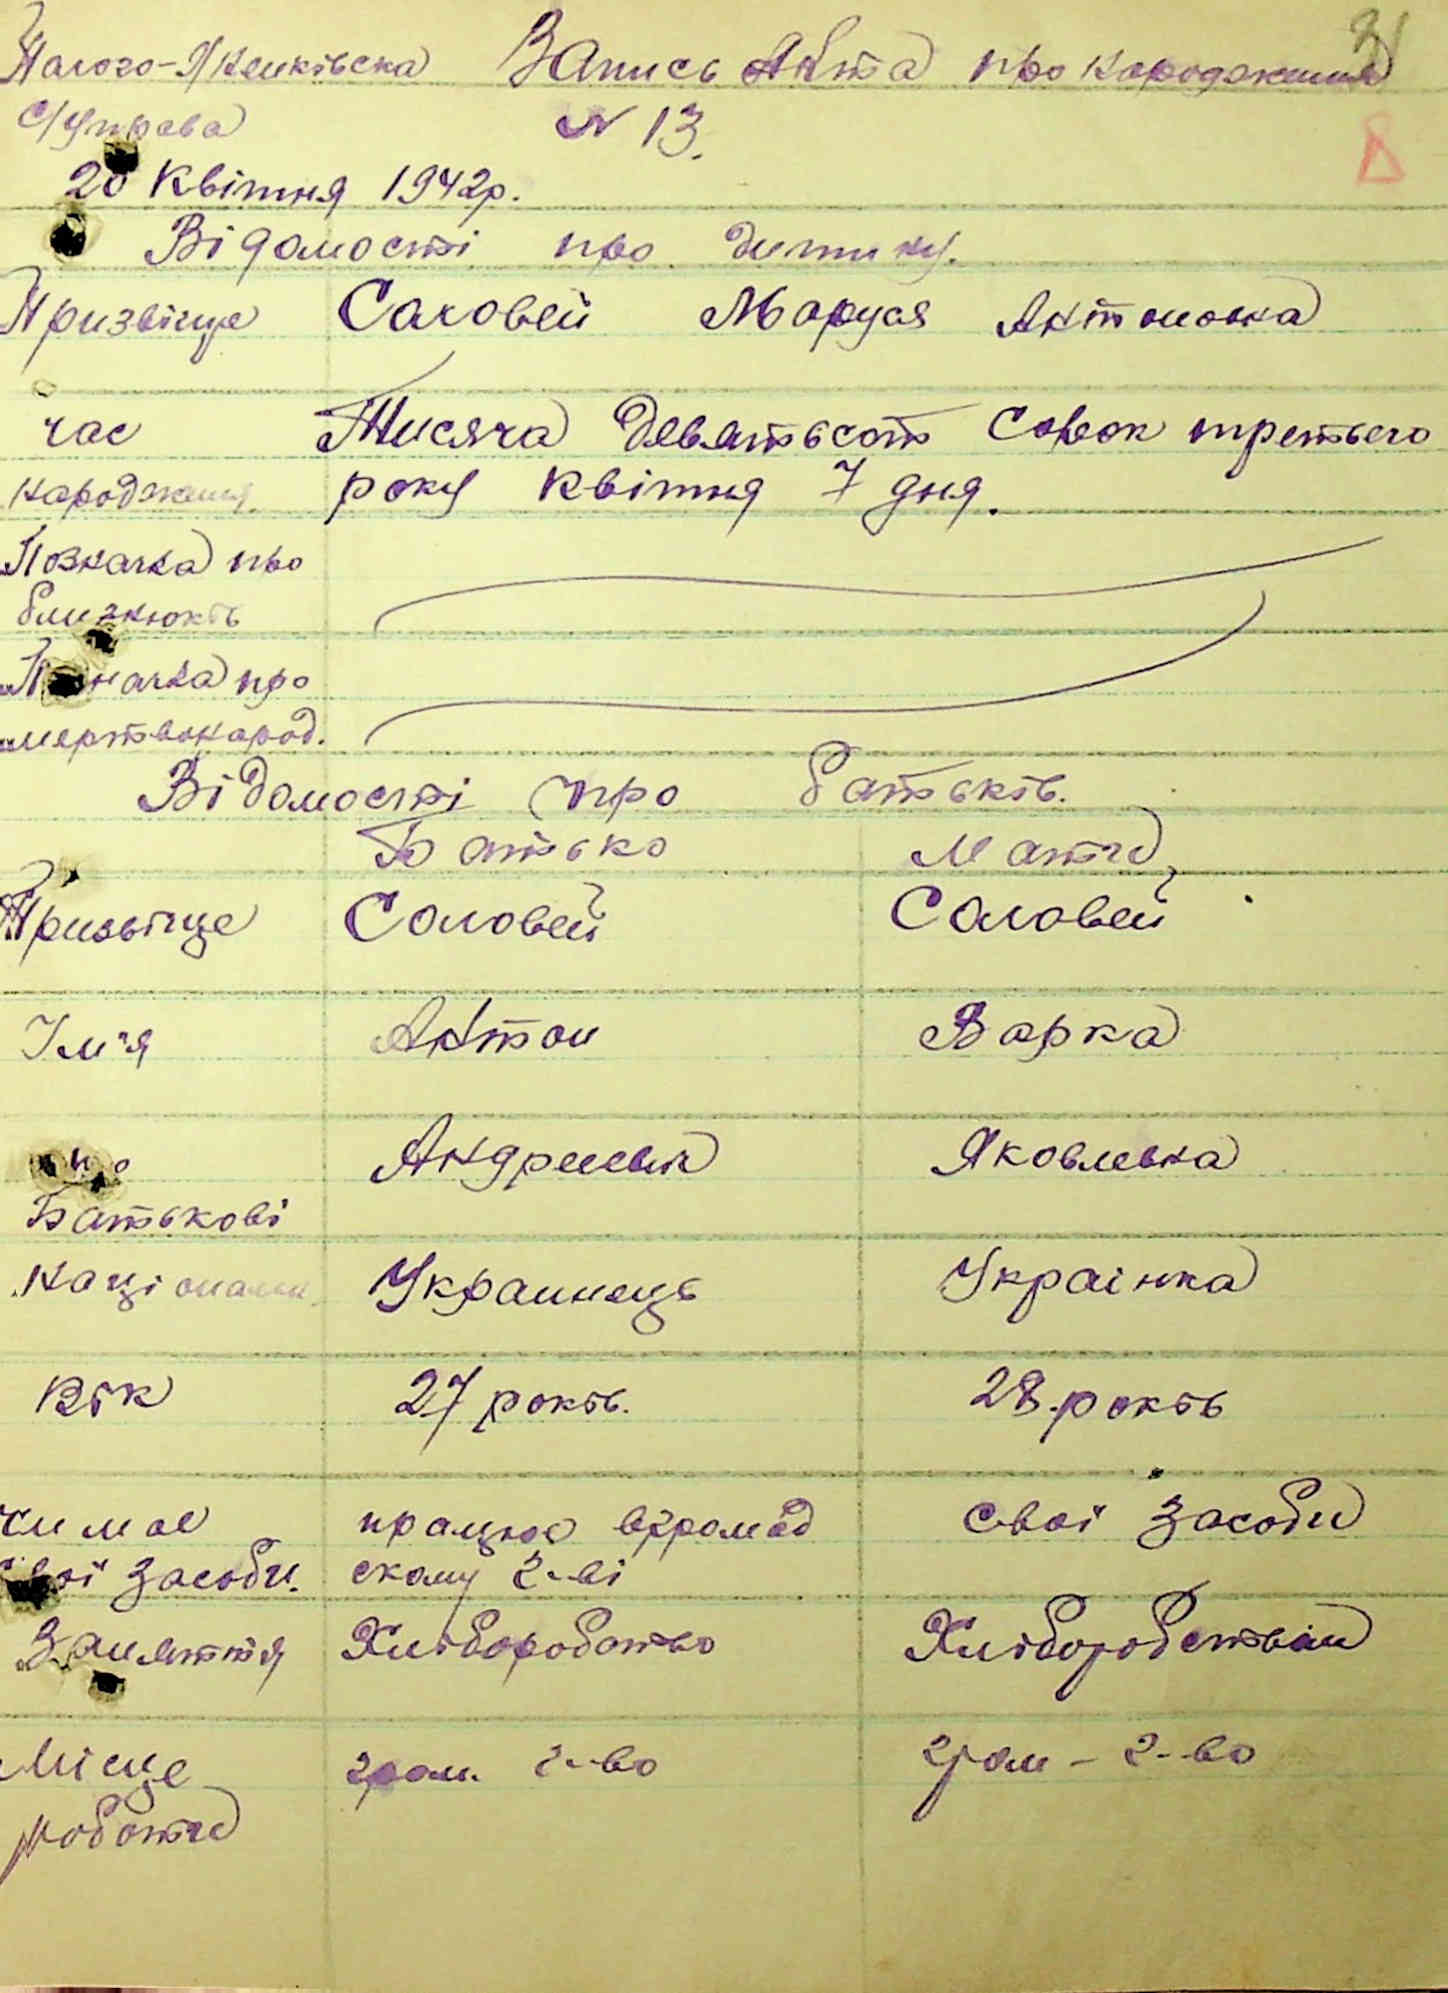 Запись Акта про народження
С/Управа № 13.
20 Квітня 1942р.
Відомості про дитину.
Призвіще Соловей Маруся Антоновна
час Тисяча девятьсот Сорок третього
народження року Квітня 7 дня.
Позначка про
близнюків
Позначка про
мертвонарод.
Відомості про батьків.
Батько Мати
Призвіще Соловей Соловей
Ім"я Антон Варка
по Андреевич Яковлевна
Батькові
Націонали Украинець Українка
Вік 27 років. 28 років
чи має працює в громад свої засоби
свої засоби. скому г-ві
Заняття Хлібороботво Хлібороб
Місце гром. г-во гром - г-во
роботи